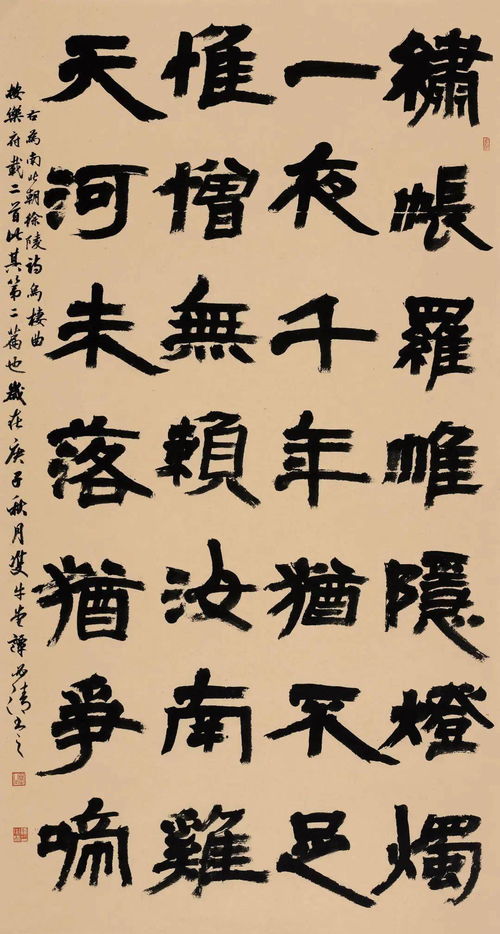 繡帳羅帷隱燈燭
一夜千年猶不足
惟憎無賴汝南雞
天河未落猶爭啼
右為南北朝徐陵詩烏棲曲
按樂府載二首此其第二篇也歲在庚子秋月雙牛堂譚石清書之